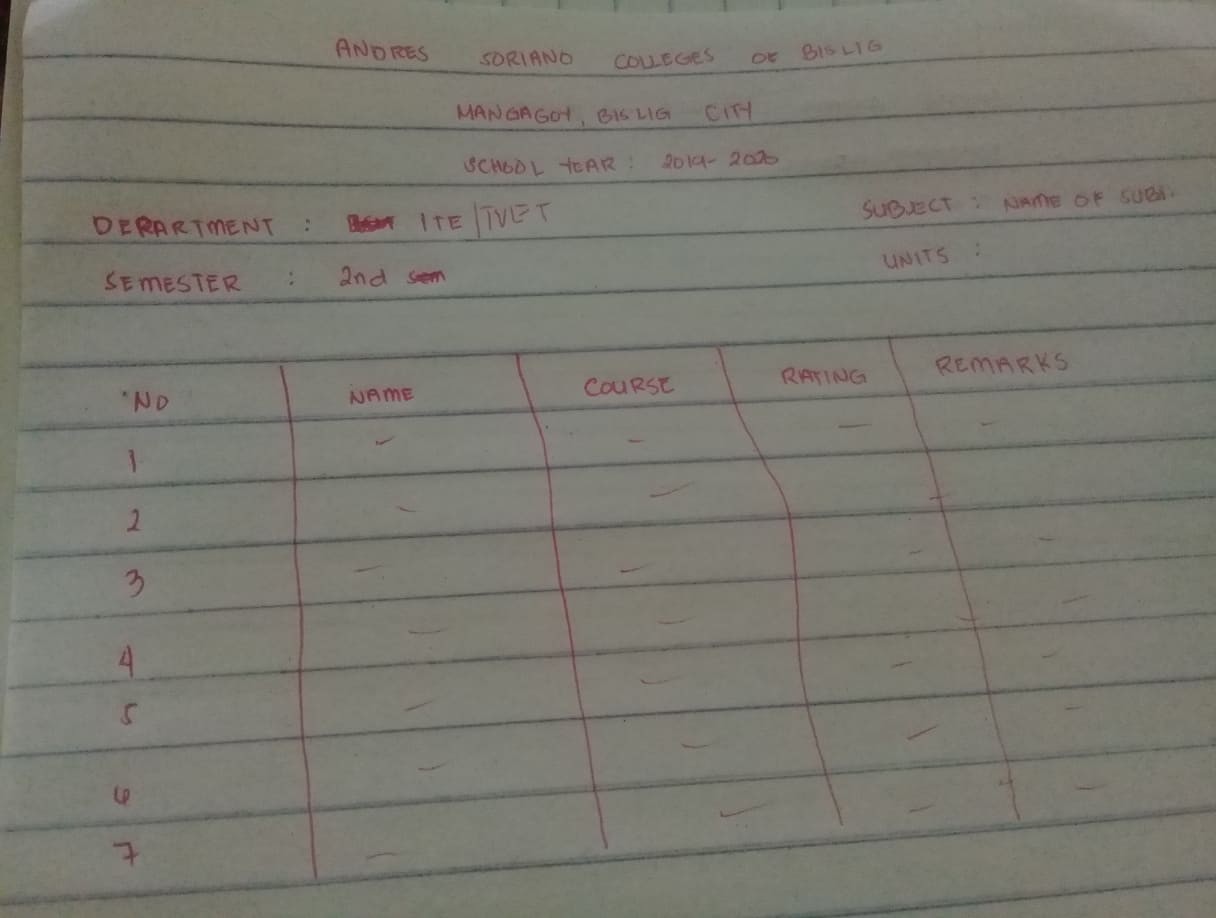 ANDRES SORIANO COLLEGES OF BISLIG
MANGAGOY, BISLIG CITY
SCHOOL YEAR : 2019-2020
DEPARTMENT : ITE/TVET
SUBJECT : NAME OF SUBJ.
SEMESTER : 2nd sem
UNITS :
NO NAME COURSE RATING REMARKS
1 - - - -
2 - - -
3 - - - -
4 - - - -
5 - - - -
6 - - - -
7 - - - -